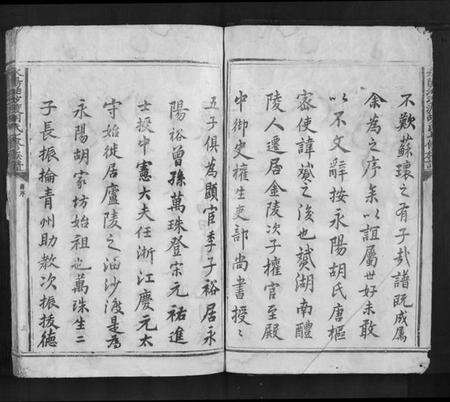 不歎蘇瓌之有子哉譜既成屬
余為之序余以誼屬世好未敢
以不文辭按永陽胡氏唐樞
密使諱贇之後也贇湖南醴
陵人遷居金陵次子權官至殿
中御史權生吏部尚書授〻
五子俱為顯官季子裕居永
陽裕曾孫萬珠登宋元祐進
士授中憲大夫任浙江慶元太
守始徙居廬陵之油沙渡是為
永陽胡家坊始祖也萬珠生二
子長振掄青州助教次振拔德